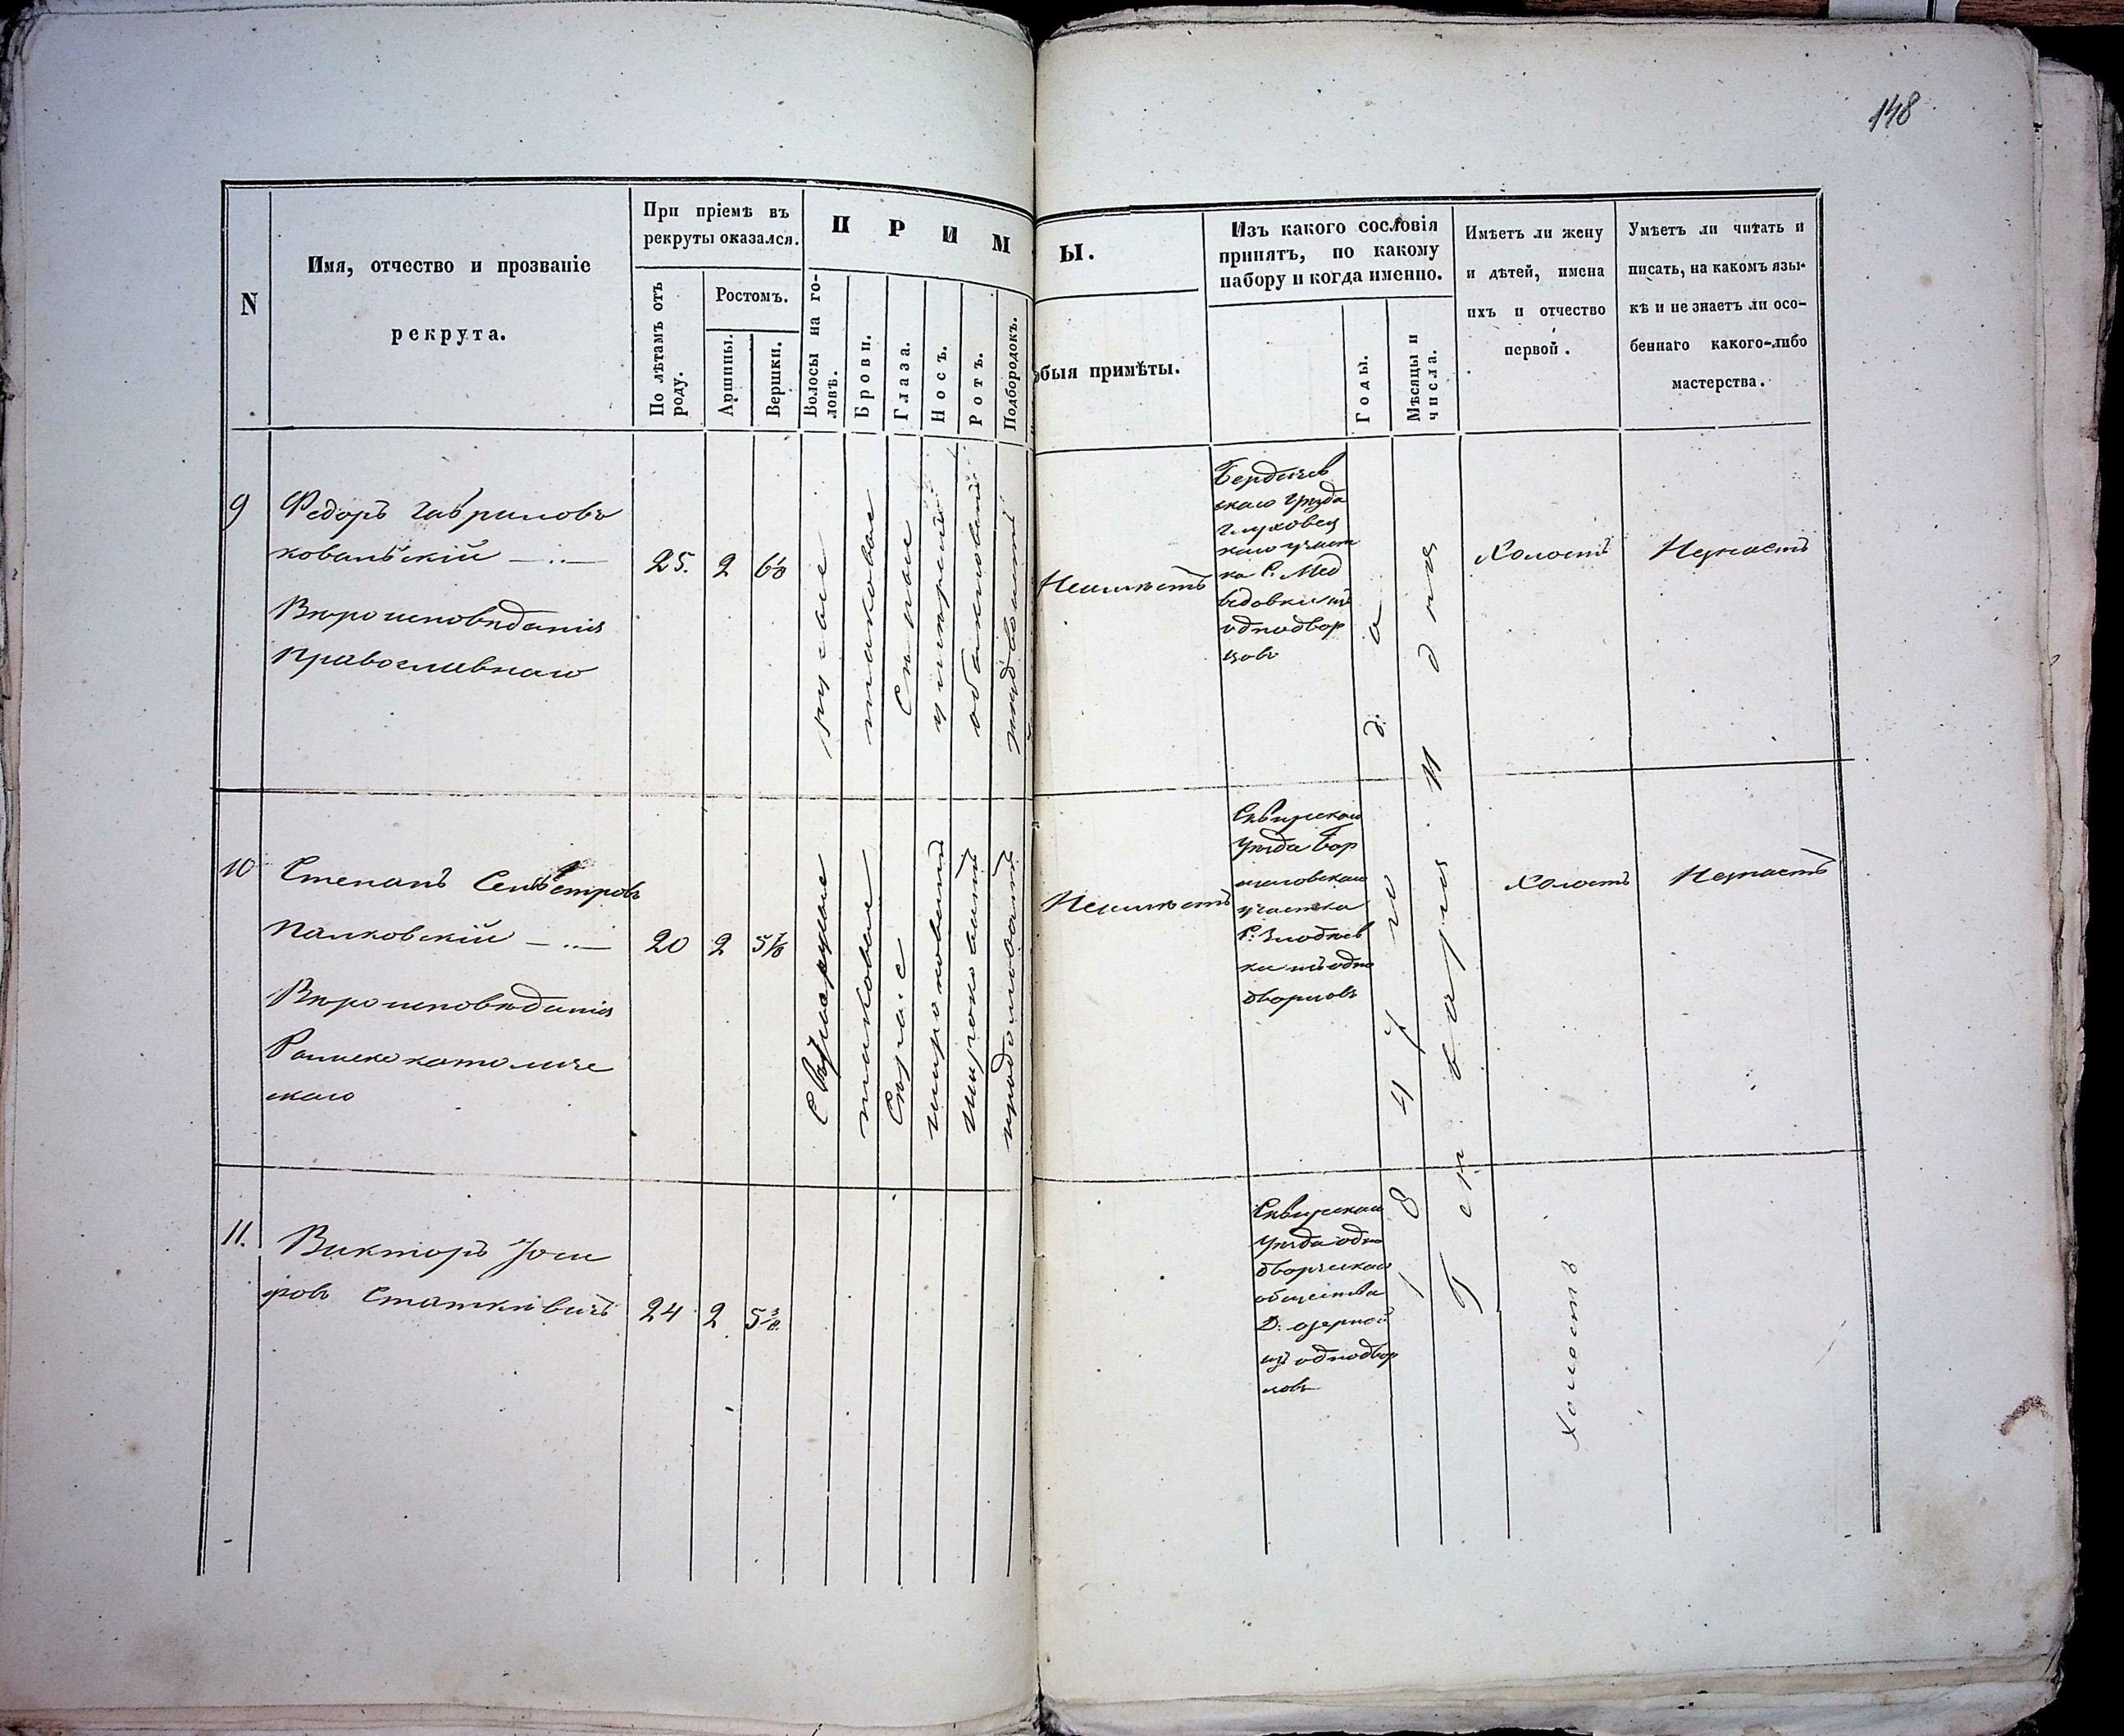 148
N
Имя, отчество и прозваніе
рекрута.
При пріемѣ въ
рекруты оказался.
По лѣтамъ отъ
роду.
Ростомъ.
Аршины.
Вершки.
П Р И М
Волосы на го-
ловѣ.
Брови.
Глаза.
Носъ.
Ротъ.
Подбородокъ.
Ы.
обыя примѣты.
Изъ какого сословія
принятъ, по какому
набору и когда именно.
Годы.
Мѣсяцы и
числа.
Имѣетъ ли жену
и дѣтей, имена
ихъ и отчество
первой.
Умѣетъ ли читать и
писать, на какомъ язы-
кѣ и не знаетъ ли осо-
беннаго какого-либо
мастерства.
9
Федоръ Гавриловъ
ковальскій
Вѣроисповѣданія
Православнаго
25.
2
6 1/8
русые
таковые
Сѣрые
умѣренный
обыкновенный
Неимѣетъ
Бердичев
скаго Уѣзда
Глуховец
каго участ
ка С. Мед
ведовки изъ
однодвор
цовъ
Холостъ
Незнаетъ
10
Степанъ Селвестровъ
Палковскій
Вѣроисповѣданія
Римско католиче
скаго
20
2
5 1/8
Свѣтлорусые
таковые
Сѣрые
широковатый
широковатый
продолговатый
Неимѣетъ
Сквирскаго
Уѣзда Бор
щаговскаго
участка
С: Злодѣев
ки изъ одно
дворцовъ
Холостъ
Незнаетъ
11.
Викторъ Іоси
фовъ Статкѣвичъ
24
2
5 3/8
Сквирскаго
Уѣзда одно
дворческаго
общества
Д: озерной
изъ однодвор
цовъ
1847 года
Генваря И дня
Холостъ